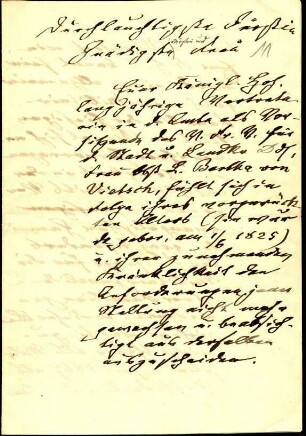 Durchlauchtigste Fürstin
Gnädigste Frau
11
Eure Königl. Hoh.
langjährige Vertrete-
rin in d. Amte als Vor-
sitzende des V. Fr. V. für
d. Stadt u. Landkr.
Frau Bertha von
Vietsch, fühlt sich in
folge ihres vorgerück-
ten Alters (sie wur-
de gebor. am 1/6 1825)
u. ihrer zunehmenden
Kränklichkeit den
Anforderungen jener
Stellung nicht mehr
gewachsen u. beabsich-
tigt aus derselben
auszuscheiden.